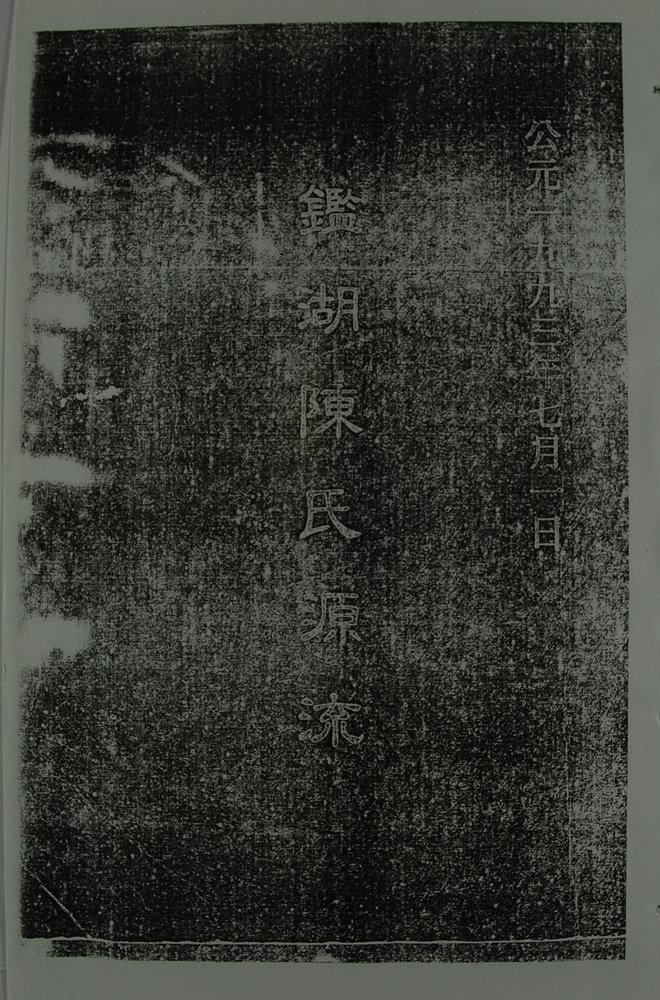 公元一九九三年七月一日
鑑湖陳氏源流